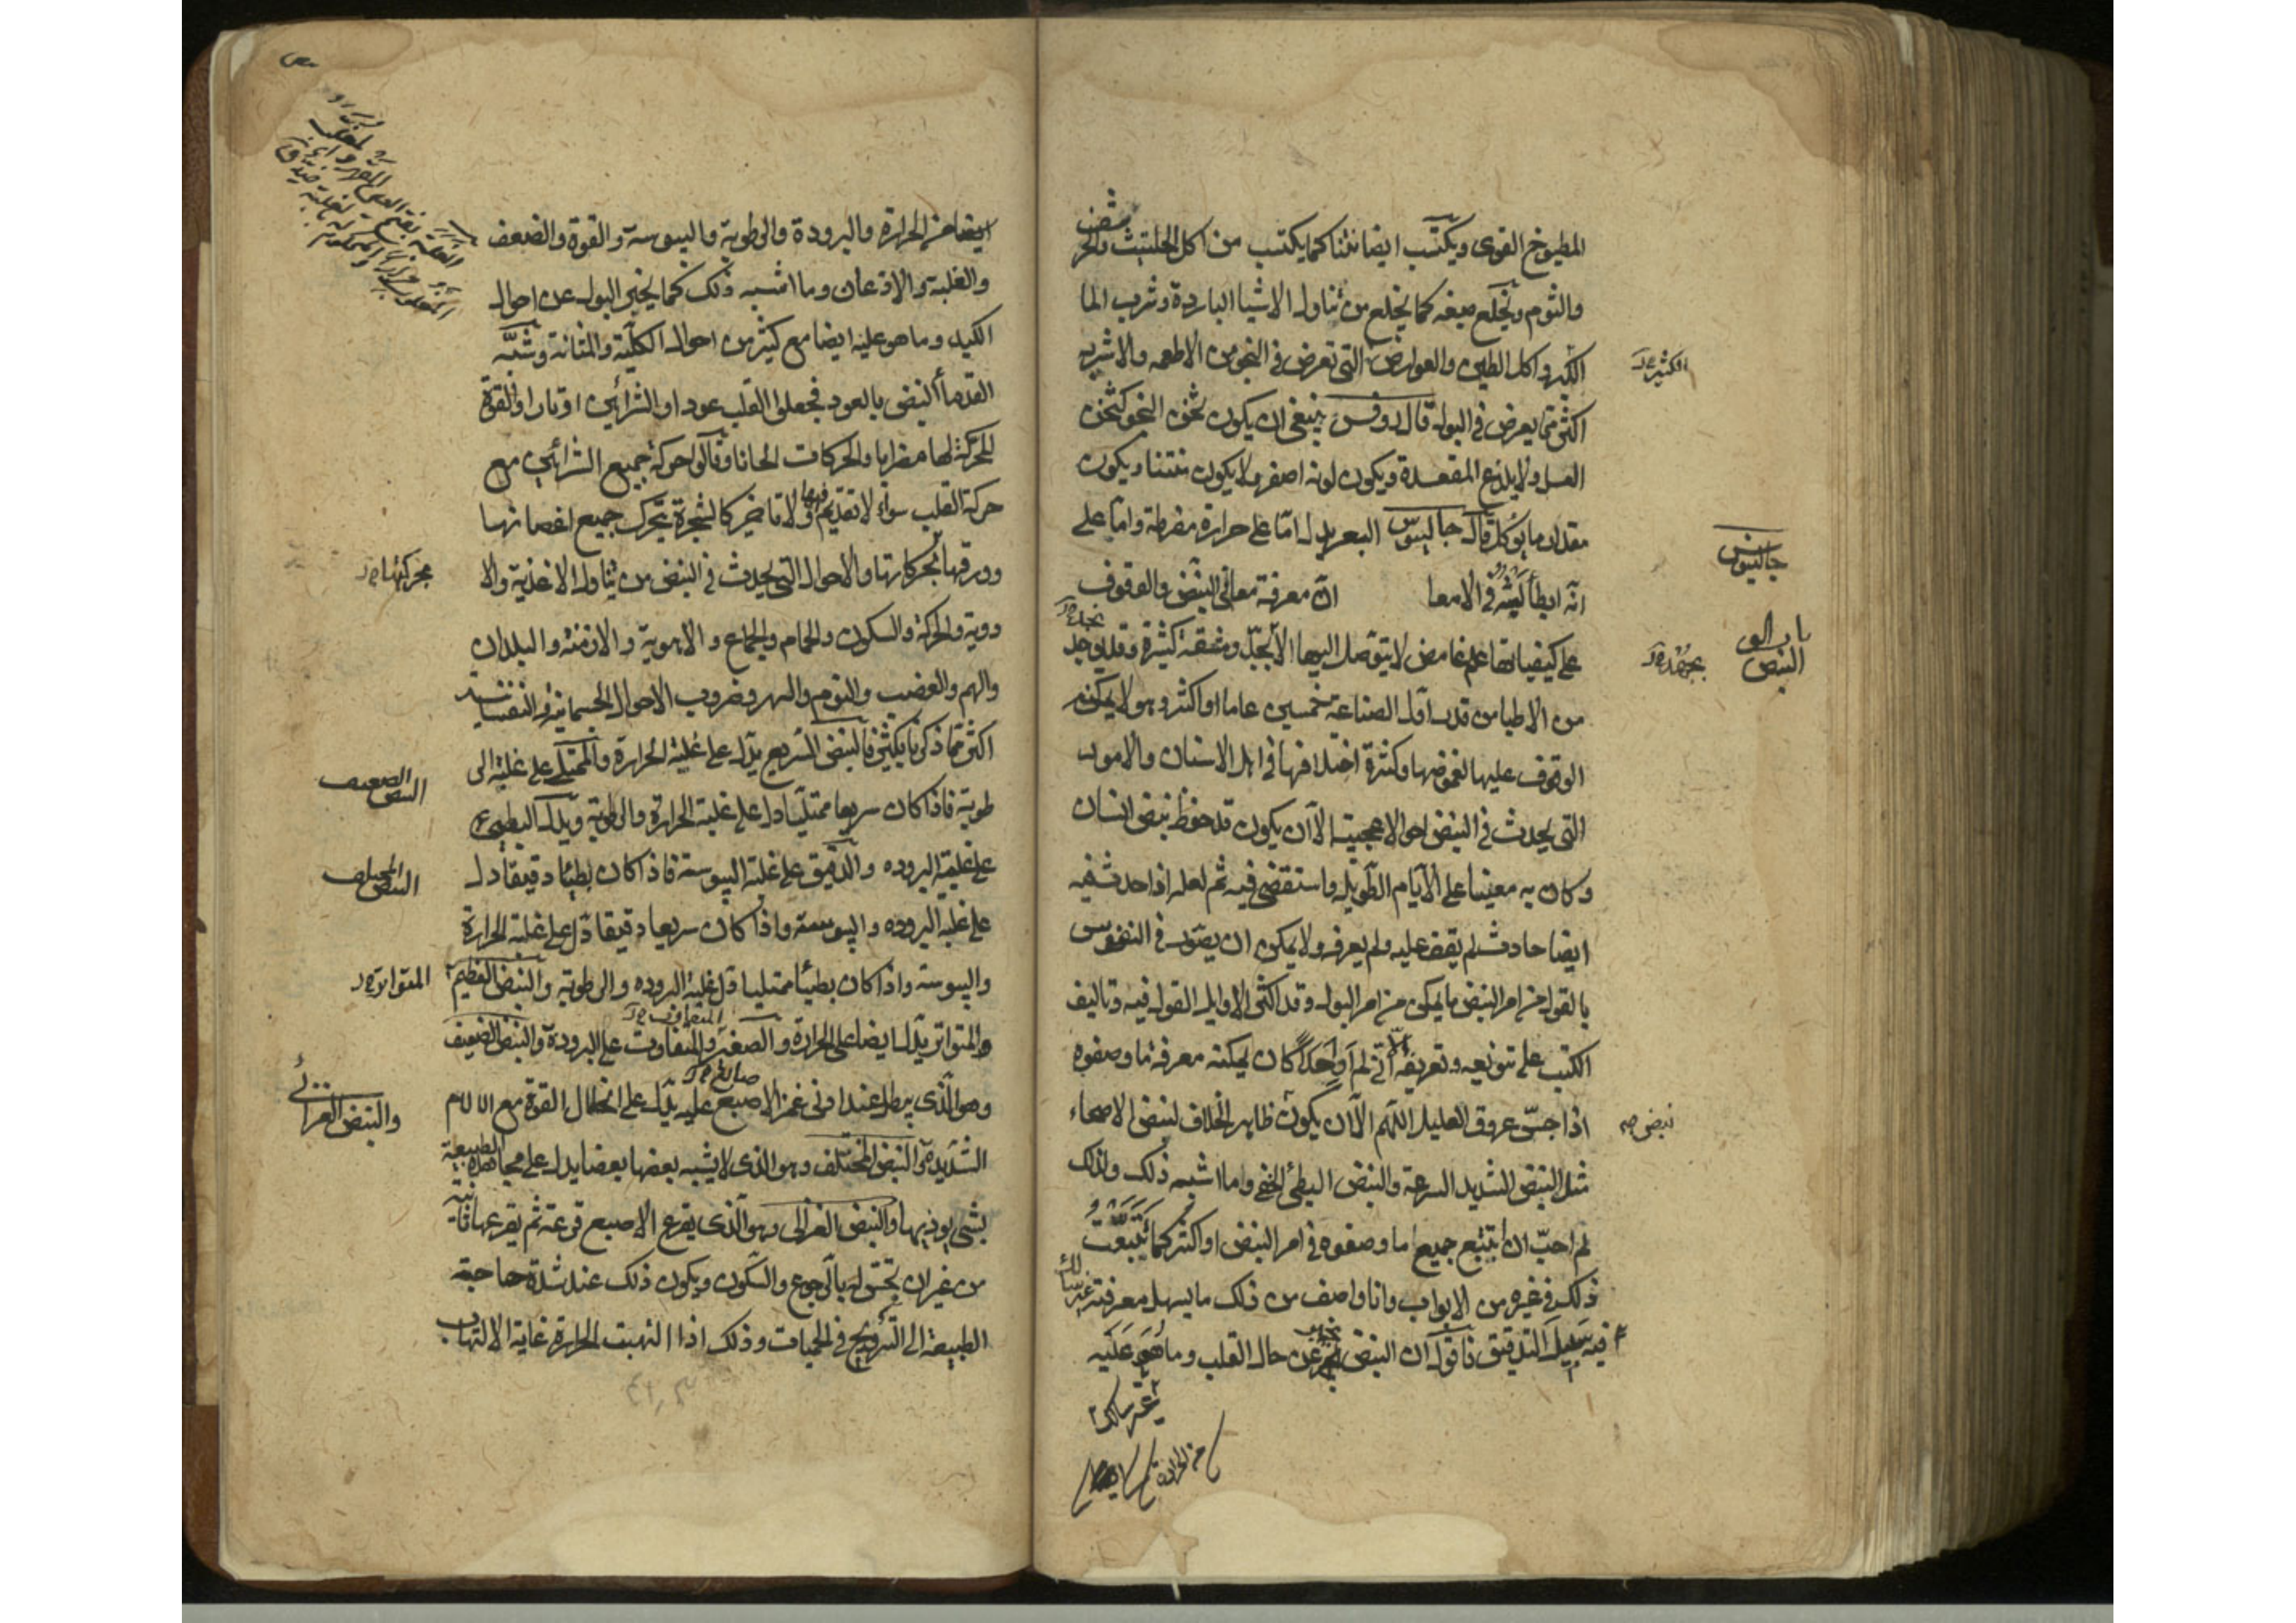 المطبوخ القوى ويكتسب ايضا نتنا كما يكتسب من اكل الحلتيت والحر
والثوم ويخلع صبغه كما يخلع من تناول الاشيا الباردة وشرب الما
الكثير واكل الطين والعوارض التى تعرض فى النجو من الاطعمه والاشربه
الكثيرة
اكثر مما يعرض فى البول قال روفس ينبغى ان يكون ثخن النجو كثخن
العسل ولا يلذع المقعدة ويكون لونه اصفر ولا يكون منتنا ويكون
مقدار ما يؤكل قال جالينوس البعر يدل اما على حرارة مفرطة واما على
جالينوس
انه ابطأ لبثه فى الامعا ان معرفة معانى النبض والوقوف
باب
النبض
على كيفياتها علم غامض لا يتوصل اليها الا بجد ومشقة كثيرة وقد يوجد
من الاطبا من قد زاول الصناعة خمسين عاما او اكثر وهو لا يمكنه
الوقوف عليها لغموضها وكثرة اختلافها فى اهل الاسنان والامور
التى يحدث فى النبض احوالا عجيبة الا ان يكون قد حفظ نبض انسان
وكان به معينا على الايام الطويلة واستقصى فيه ثم لعله اذا حدث فيه
ايضا حادث لم يقف عليه ولم يعرفه ولا يمكن ان يصور فى النفوس
بالقول من امر النبض ما يمكن من امر البول وقد اكثر الاوايل القول فيه وتاليف
الكتب على تنويعه وتعريفه الا انى لم ار احدا كان يمكنه معرفة ما وصفوه
اذا جس عروق العليل اللهم الا ان يكون ظاهر الخلاف لنبض الاصحاء
نبض
مثل النبض الشديد السرعة والنبض البطئ الخفى وما اشبه ذلك ولذلك
لم احب ان اتتبع جميع ما وصفوه فى امر النبض او اكثر كما تتبعت
ذلك فى غيره من الابواب وانا واصف من ذلك ما يسهل معرفته غير سالك
فيه سبيل التدقيق فاقول ان النبض يخبر عن حال القلب وما هو عليه
غير سالك
من الحرارة
ايضا من الحرارة والبرودة والرطوبة واليبوسة والقوة والضعف
والغلبة والاذعان وما اشبه ذلك كما يخبر البول عن احوال
الكبد وما هو عليه ايضا مع كثير من احوال الكلية والمثانة وشبه
القدماء النبض بالعود فجعلوا القلب عودا والشرائين اوتارا والقوة
المحركة لها مضرابا والحركات الحانا وقالوا حركة جميع الشرائين مع
حركة القلب سواء لا تقديم فيها ولا تاخير كالشجرة يتحرك جميع اغصانها
وورقها بحركاتها والاحوال التى يحدث فى النبض من تناول الاغذية والا
بحركتها
دوية والحركة والسكون والحمام والجماع والاهوية والازمنة والبلدان
والهم والغضب والنوم والسهر وضروب الاحوال الجسمانية والنفسانية
اكثر مما ذكرنا بكثير فالنبض السريع يدل على غلبة الحرارة والممتلى على غلبة الر
طوبة فاذا كان سريعا ممتليا دل على غلبة الحرارة والرطوبة ويدل البطيئ
النبض الضعيف
على غلبة البروده والدقيق على غلبة اليبوسة فاذا كان بطيئا دقيقا دل
النبض المختلف
على غلبة البروده واليبوسة واذا كان سريعا دقيقا دل على غلبة الحرارة
واليبوسة واذا كان بطيئا ممتليا دل غلبة البروده والرطوبة والنبض العظيم
المتواترة
والمتواتر يدل ايضا على الحرارة والصغير والمتفاوت على البرودة والنبض الضعيف
وهو الذى يبطل عند ادنى غمز الاصبع عليه يدل على انحلال القوة مع الالام
والنبض الغزالى
الشديدة والنبض المختلف وهو الذى لا يشبه بعضها بعضا يدل على مجاهدة الطبيعة
بشى يوذيها والنبض الغزالى وهو الذى يقرع الاصبع قرعة ثم يقرعها ثانية
من غير ان يحس له بالرجوع والسكون ويكون ذلك عند شدة حاجة
الطبيعة الى الترويح فى الحميات وذلك اذا التهبت الحرارة غاية الالتهاب